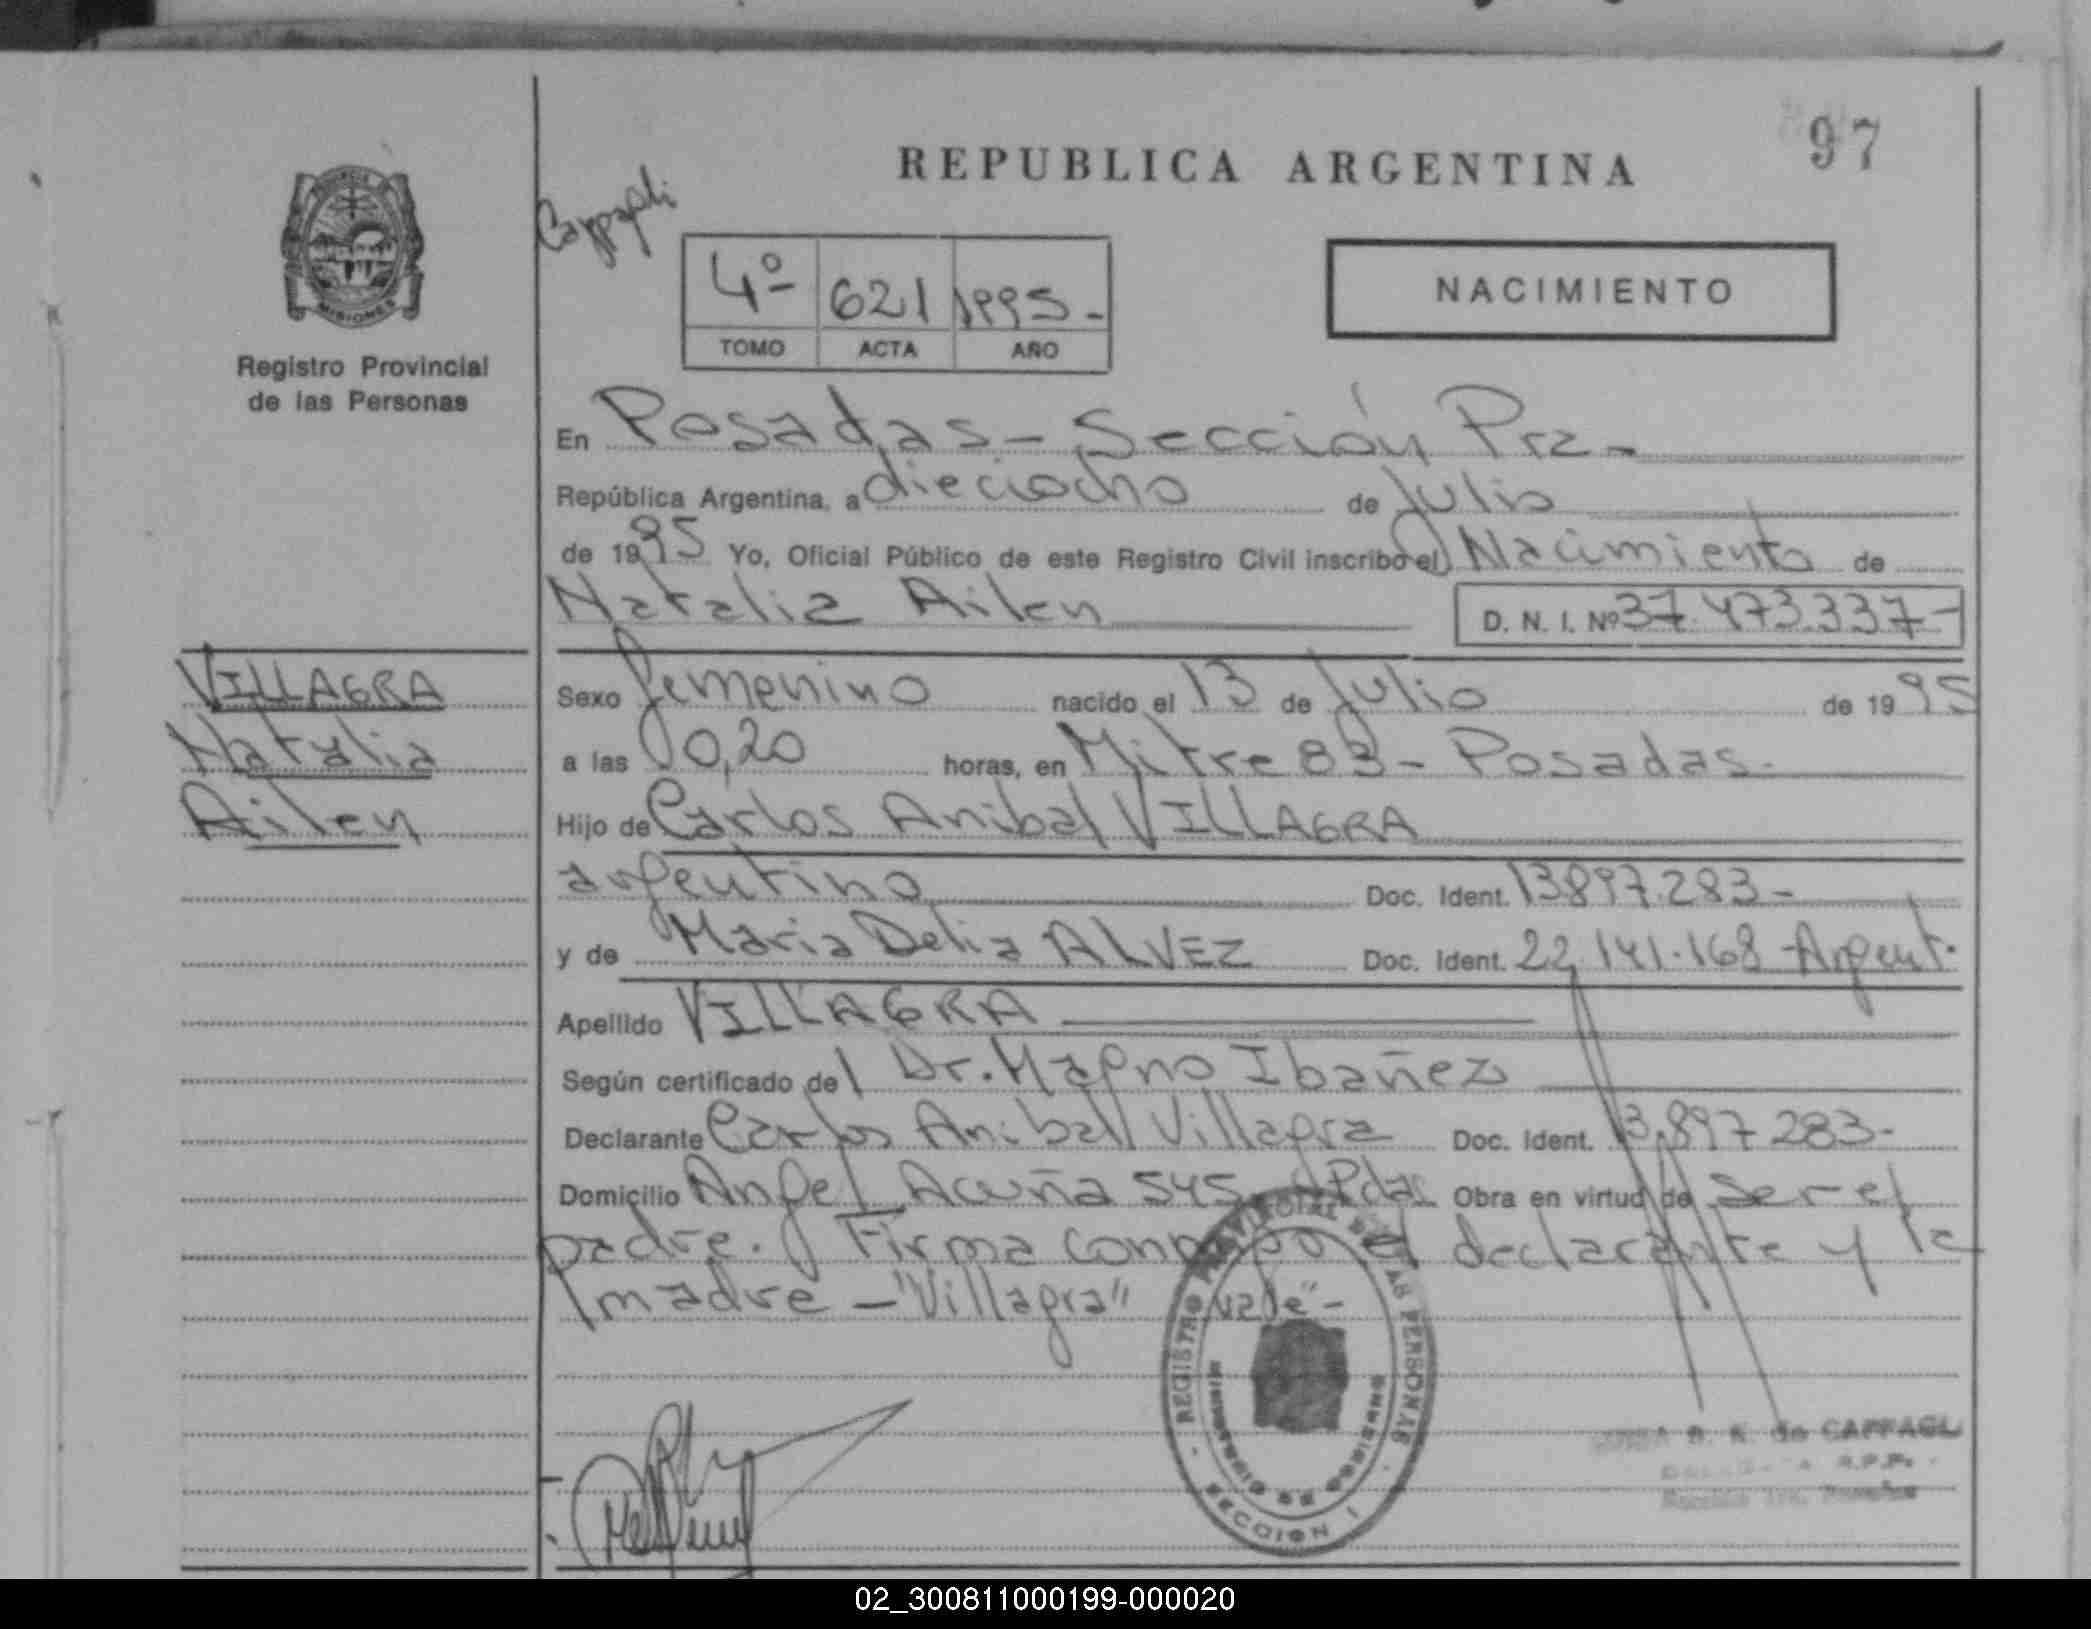 97
REPUBLICA ARGENTINA
MISIONES
Registro Provincial
de las Personas
4º 621 1995.-
TOMO ACTA AÑO
NACIMIENTO
En Posadas - Sección Pra -
República Argentina, a dieciocho de Julio
de 1995 Yo, Oficial Público de este Registro Civil inscribo el Nacimiento de
Natalia Ailen D. N. I. Nº 37.473.337-
VILLAGRA
Natalia
Ailen
Sexo femenino nacido el 13 de Julio de 1995
a las 0,20 horas, en Mitre 83 - Posadas.
Hijo de Carlos Anibal VILLAGRA
argentino Doc. Ident. 13897.283-
y de Maria Delia ALVEZ Doc. Ident. 22.141.168-Argent.
Apellido VILLAGRA
Según certificado del Dr. Magno Ibañez
Declarante Carlos Anibal Villagra Doc. Ident. 13.897.283-
Domicilio Angel Acuña 545 Pdas Obra en virtud de ser el
padre. Firma conmigo el declarante y la
madre - "Villagra" vale"-
REGISTRO PROVINCIAL DE LAS PERSONAS
MINISTERIO DE GOBIERNO
SECCION I
de CAPPAGLI
02_300811000199-000020